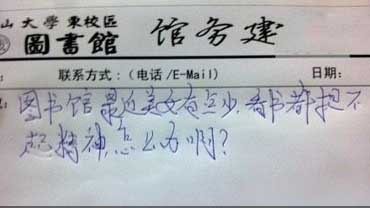 山大學東校區
圖書館 馆务建
联系方式:(电话/E-Mail) 日期:
图书馆最近美女有点少,看书都提不
起精神,怎么办啊?